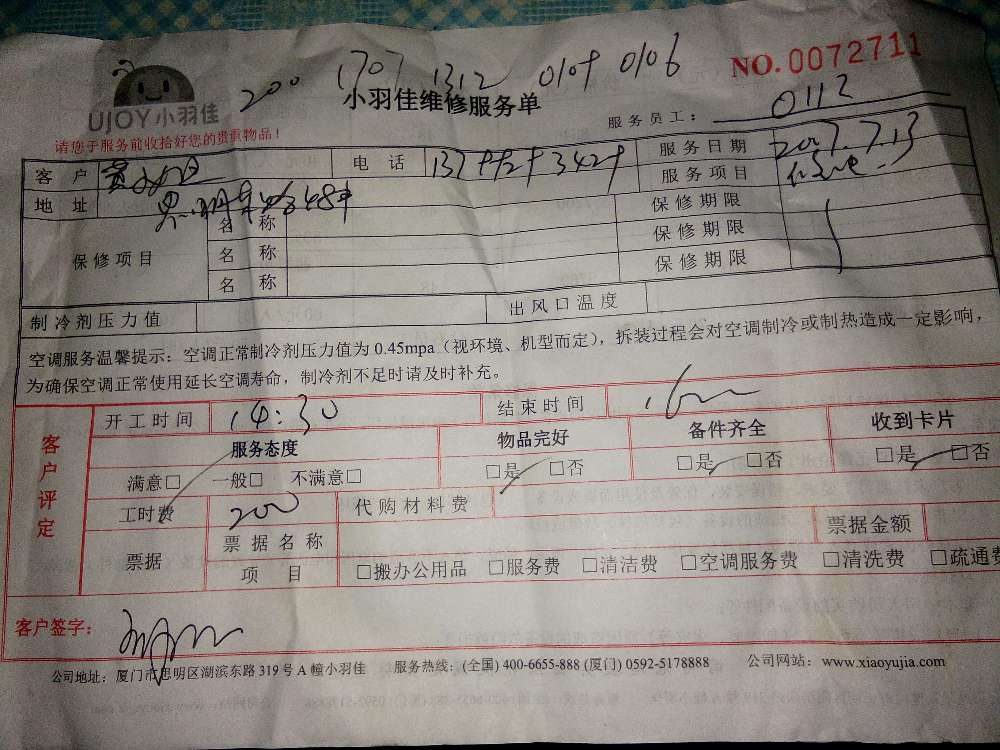 200 1707 1312 0109 0106
NO. 0072711
UJOY小羽佳
小羽佳维修服务单
服务员工： 0112
请您于服务前收拾好您的贵重物品！
客 户 电 话 服务日期
服务项目
地 址
保修项目
名 称 保修期限
名 称 保修期限
名 称 保修期限
制冷剂压力值 出风口温度
空调服务温馨提示：空调正常制冷剂压力值为 0.45mpa（视环境、机型而定），拆装过程会对空调制冷或制热造成一定影响，
为确保空调正常使用延长空调寿命，制冷剂不足时请及时补充。
客户评定
开工时间 14:30 结束时间
服务态度 物品完好 备件齐全 收到卡片
满意□ 一般□ 不满意□ □是 □否 □是 □否 □是 □否
工时费 200 代购材料费
票据 票据名称 票据金额
项 目 □搬办公用品 □服务费 □清洁费 □空调服务费 □清洗费 □疏通费
客户签字：
公司地址：厦门市思明区湖滨东路 319 号 A 幢小羽佳 服务热线：(全国) 400-6655-888 (厦门) 0592-5178888 公司网站：www.xiaoyujia.com